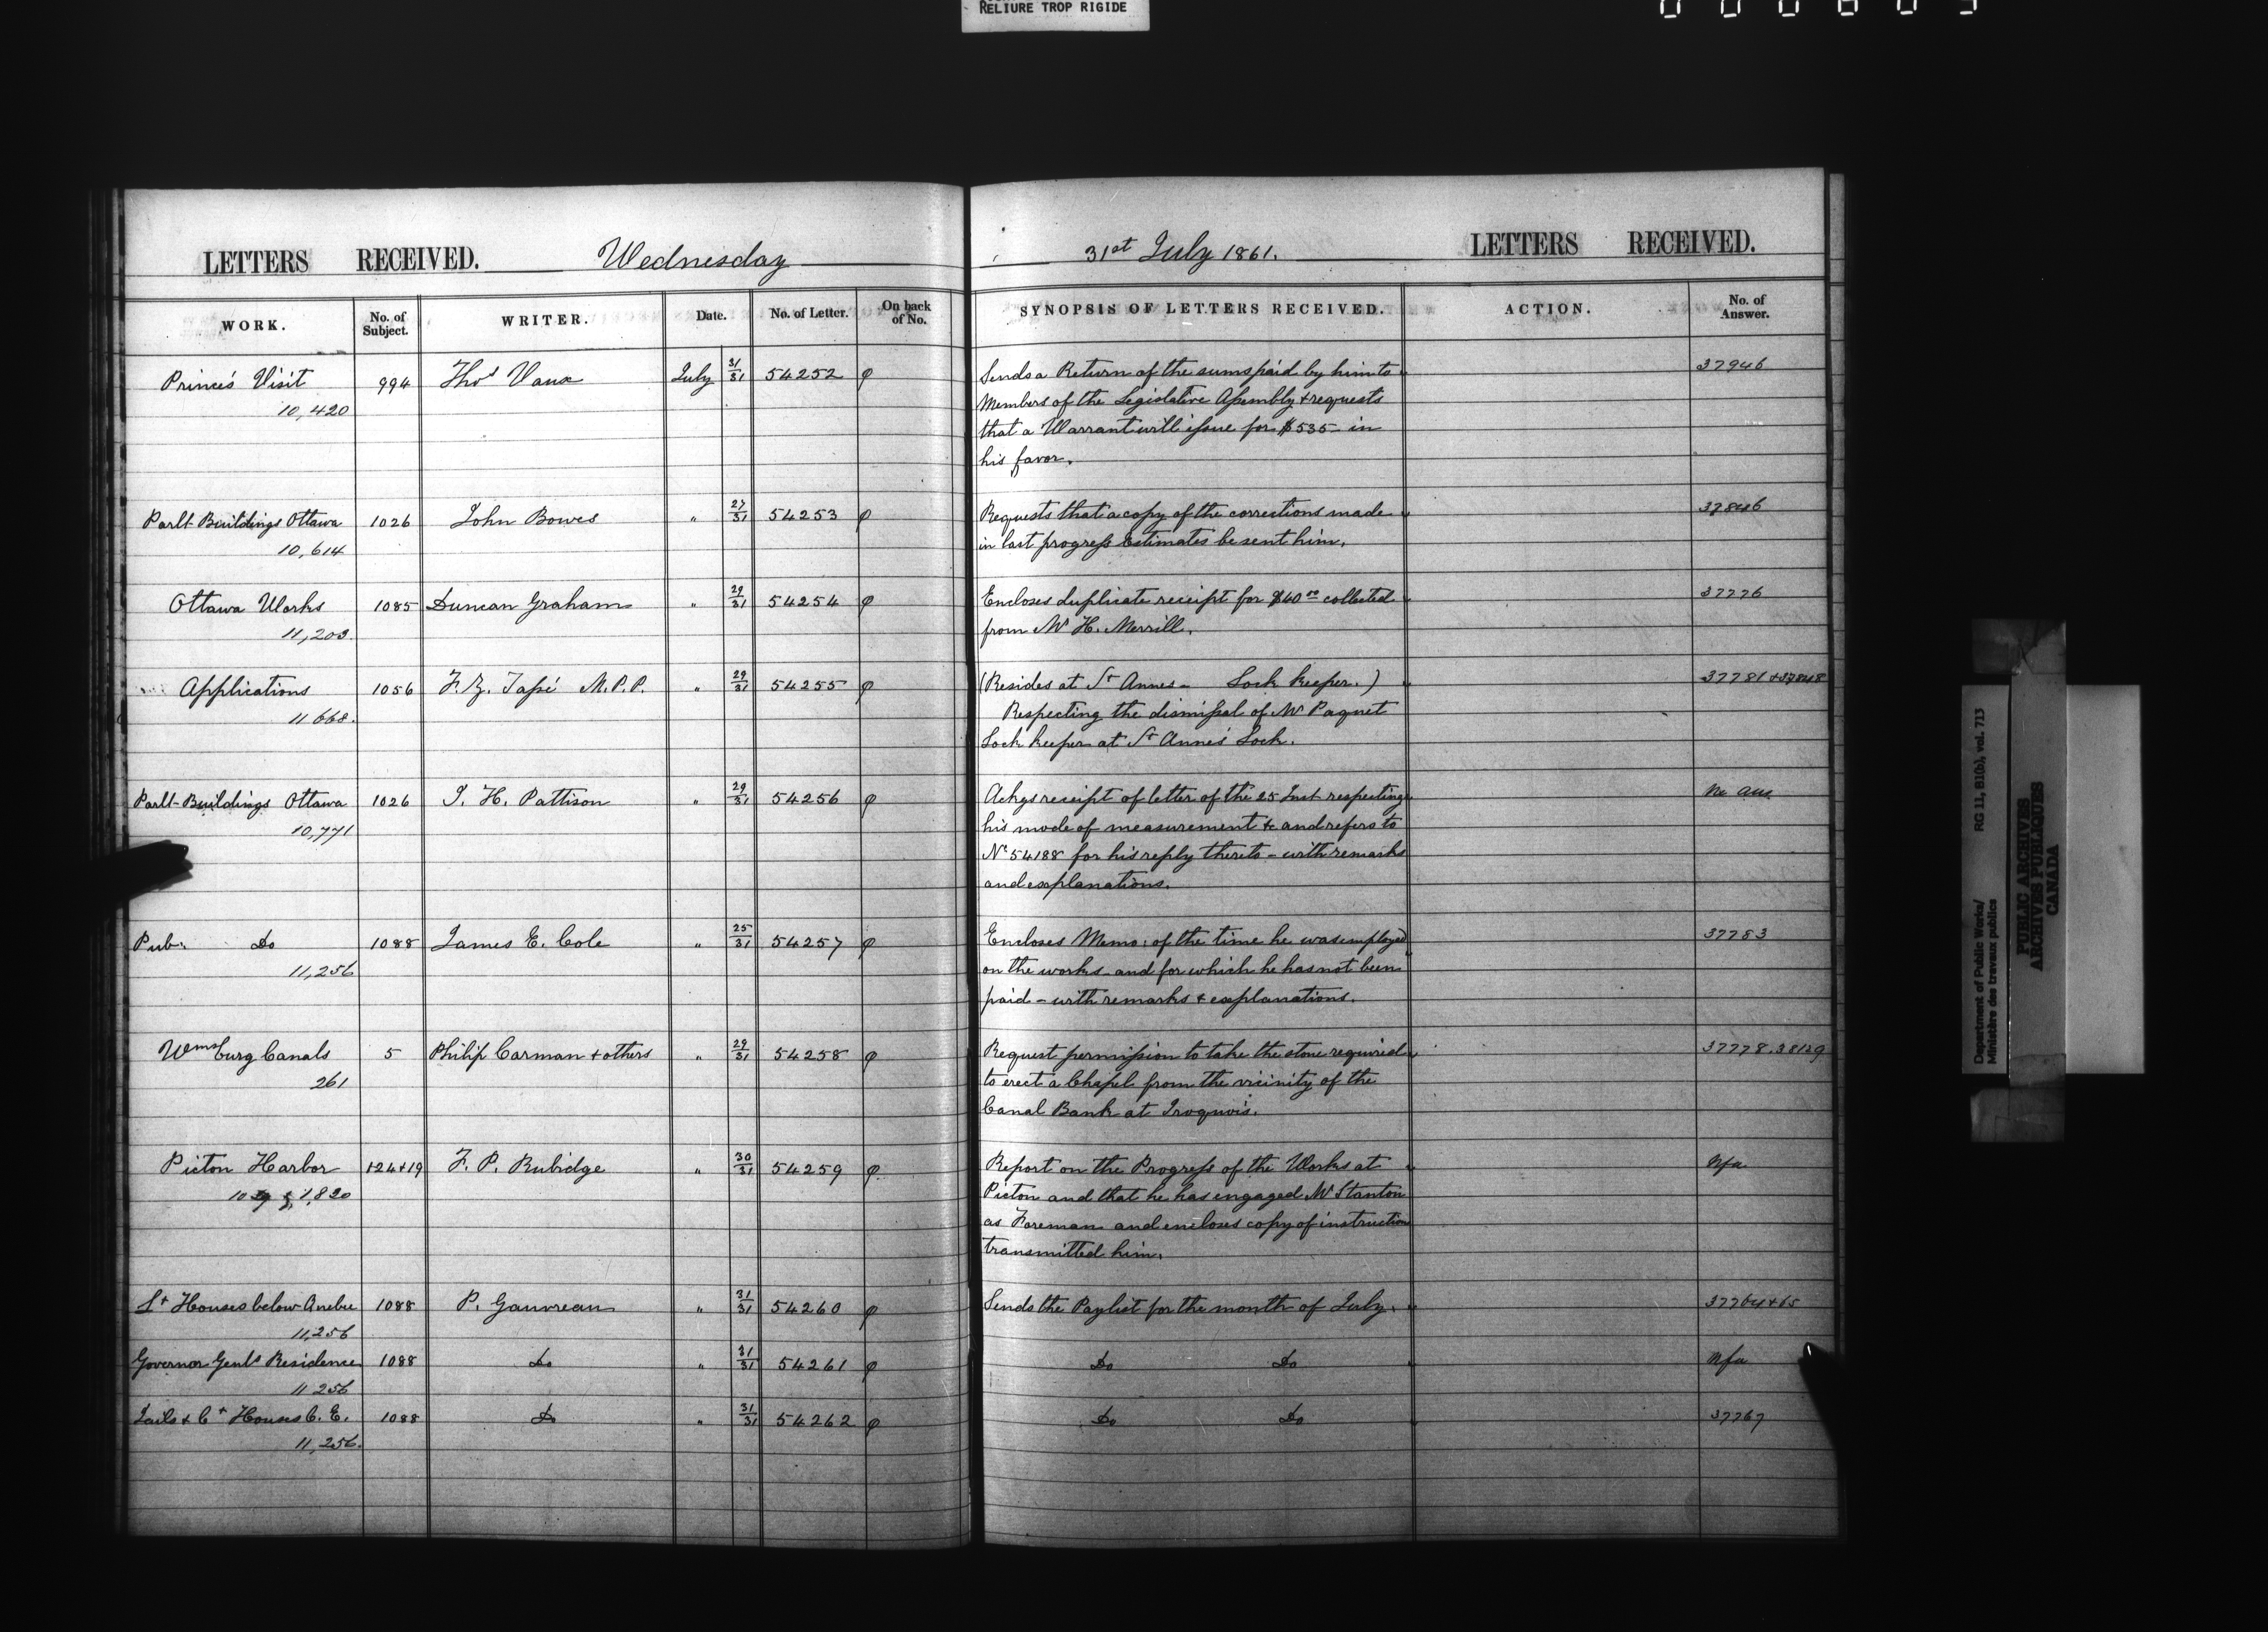 RELIURE TROP RIGIDE
LETTERS RECEIVED. Wednesday 31st July 1861. LETTERS RECEIVED.
WORK. No. of Subject. WRITER. Date. No. of Letter. On back of No. SYNOPSIS OF LETTERS RECEIVED. ACTION. No. of Answer.
Prince's Visit 994 Thos Vaux July 31/31 54252 φ Sends a Return of the sums paid by him to 37946
10,420 Members of the Legislative Assembly & requests
that a Warrant will issue for $535- in
his favor.
Parlt Buildings Ottawa 1026 John Bowes " 27/31 54253 φ Requests that a copy of the corrections made 37846
10,614 in last progress Estimates be sent him.
Ottawa Works 1085 Duncan Graham " 29/31 54254 φ Encloses duplicate receipt for $40.00 collected 37776
11,203. from Mr H. Merrill.
Applications 1056 " 29/31 54255 φ (Resides at St Annes - Lock keeper.) 37781 & 37848
11668. Respecting the dismissal of Mr Paquet
M.P.P. Lock keeper at St Annes Lock.
Parlt Buildings Ottawa 1026 J. H. Pattison " 29/31 54256 φ Ackgs receipt of letter of the 25 Inst respecting No ans
10,771 his mode of measurement &c and refers to
No 54188 for his reply thereto - with remarks
and explanations.
Pub: Do 1088 James E. Cole " 25/31 54257 φ Encloses Memo: of the time he was employed 37783
11,256 on the works and for which he has not been
paid - with remarks & explanations.
Wmsburg Canals 5 Philip Carman & others " 29/31 54258 φ Request permission to take the stone required 37778. 38129
261 to erect a Chapel from the vicinity of the
Canal Bank at Iroquois.
Picton Harbor 124 & 19 F. P. Rubidge " 30/31 54259 φ Report on the Progress of the Works at Nfa
1,820 Picton and that he has engaged Mr Stanton
as Foreman and encloses copy of instruction
transmitted him.
Lt Houses below Quebec 1088 P. Gauvreau " 31/31 54260 φ Sends the Paylist for the month of July. 37764 & 65
11,256
Governor Genls Residence 1088 Do " 31/31 54261 φ Do Do Nfa
11256
Jails & Ct Houses C. E. 1088 Do " 31/31 54262 φ Do Do 37767
11,256.
Department of Public Works/ RG 11, B1(b), vol. 713
Ministère des travaux publics
PUBLIC ARCHIVES
ARCHIVES PUBLIQUES
CANADA